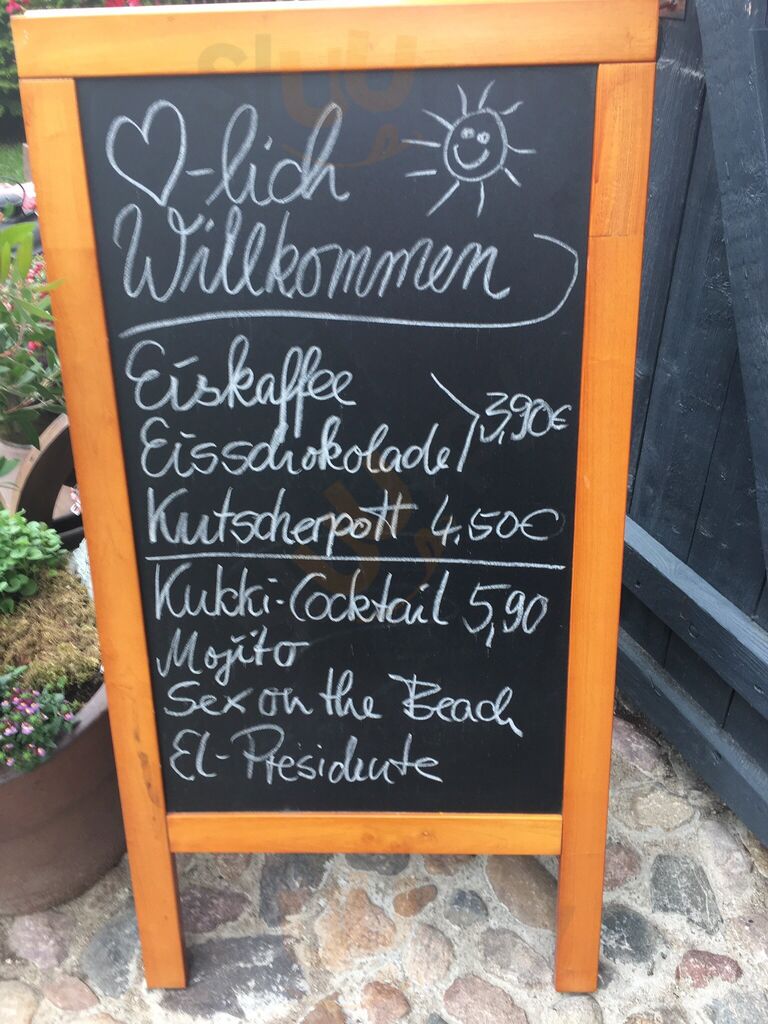 ♡-lich
Willkommen
Eiskaffee
Eisschokolade 3,90€
Kutscherpott 4,50€
Kukki-Cocktail 5,90
Mojito
Sex on the Beach
El-Presidente